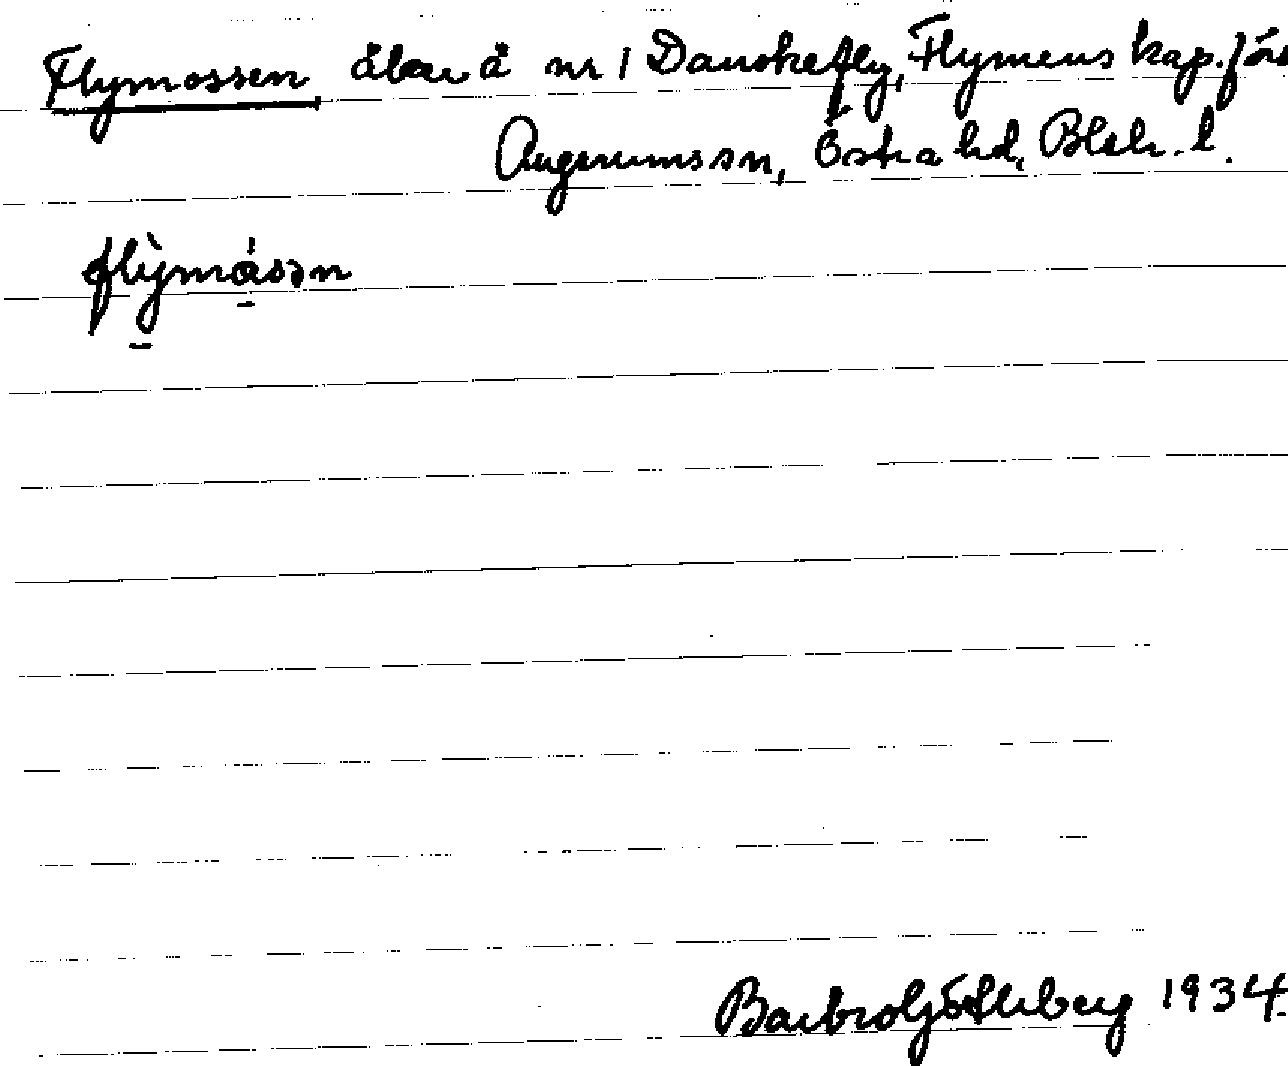 Flymossen, åker å nr 1 Danskefly, Flymens kap. förs
Augerums sn, Östra hd, Blek. l.
flỳmåsən
Barbro Söderberg 1934